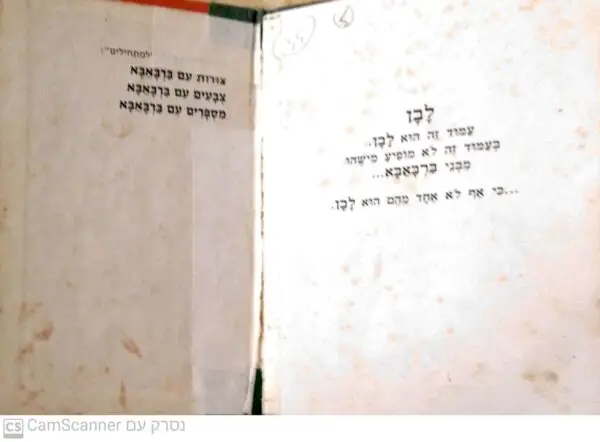 "למתחילים:
צוּרוֹת עִם בַּרְבָּאבָּא
צְבָעִים עִם בַּרְבָּאבָּא
מִסְפָּרִים עִם בַּרְבָּאבָּא
לָבָן
עַמּוּד זֶה הוּא לָבָן.
בְּעַמּוּד זֶה לֹא מוֹפִיעַ מִישֶׁהוּ
מִבְּנֵי בַּרְבָּאבָּא...
...כִּי אַף לֹא אֶחָד מֵהֶם הוּא לָבָן.
CS CamScanner נסרק עם